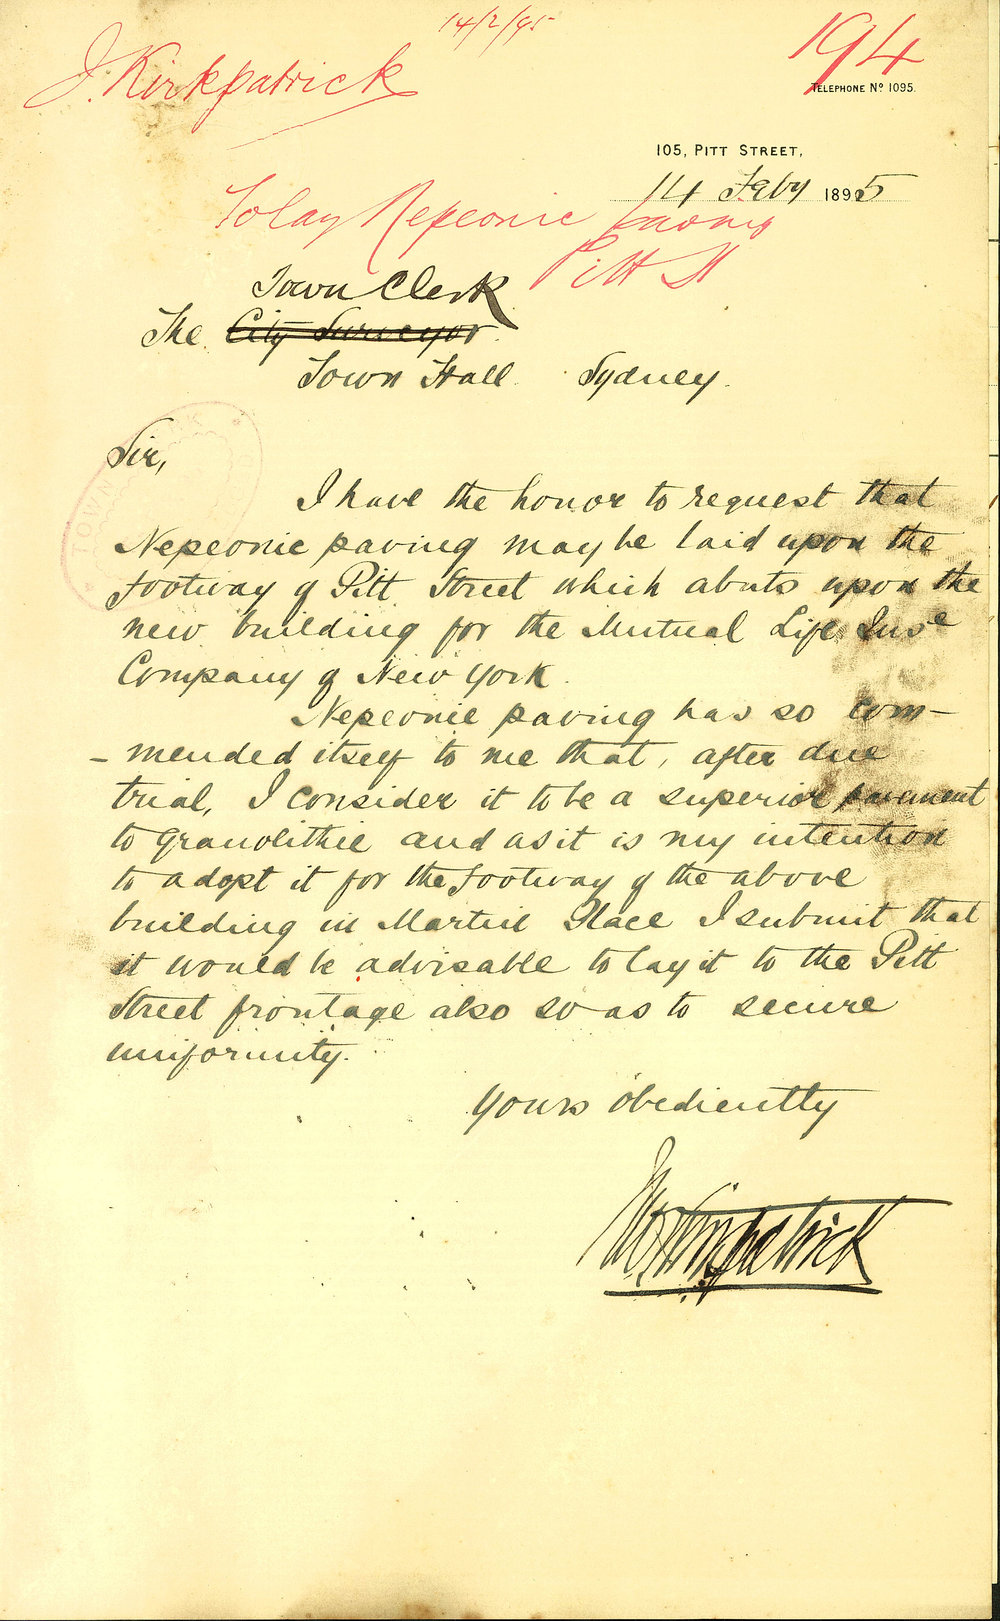 14/2/95
J. Kirkpatrick
194
TELEPHONE No 1095.
105, PITT STREET,
14 Feby 1895
To lay Nepeonic paving
Pitt St
Town Clerk
The City Surveyor
Town Hall Sydney.
Sir,
I have the honor to request that
Nepeonic paving may be laid upon the
footway of Pitt Street which abuts upon the
new building for the Mutual Life Inse
Company of New York.
Nepeonic paving has so com-
-mended itself to me that, after due
trial, I consider it to be a superior pavement
to granolithic and as it is my intention
to adopt it for the footway of the above
building in Martin Place I submit that
it would be advisable to lay it to the Pitt
Street frontage also so as to secure
uniformity.
Yours obediently
Jno Kirkpatrick
TOWN